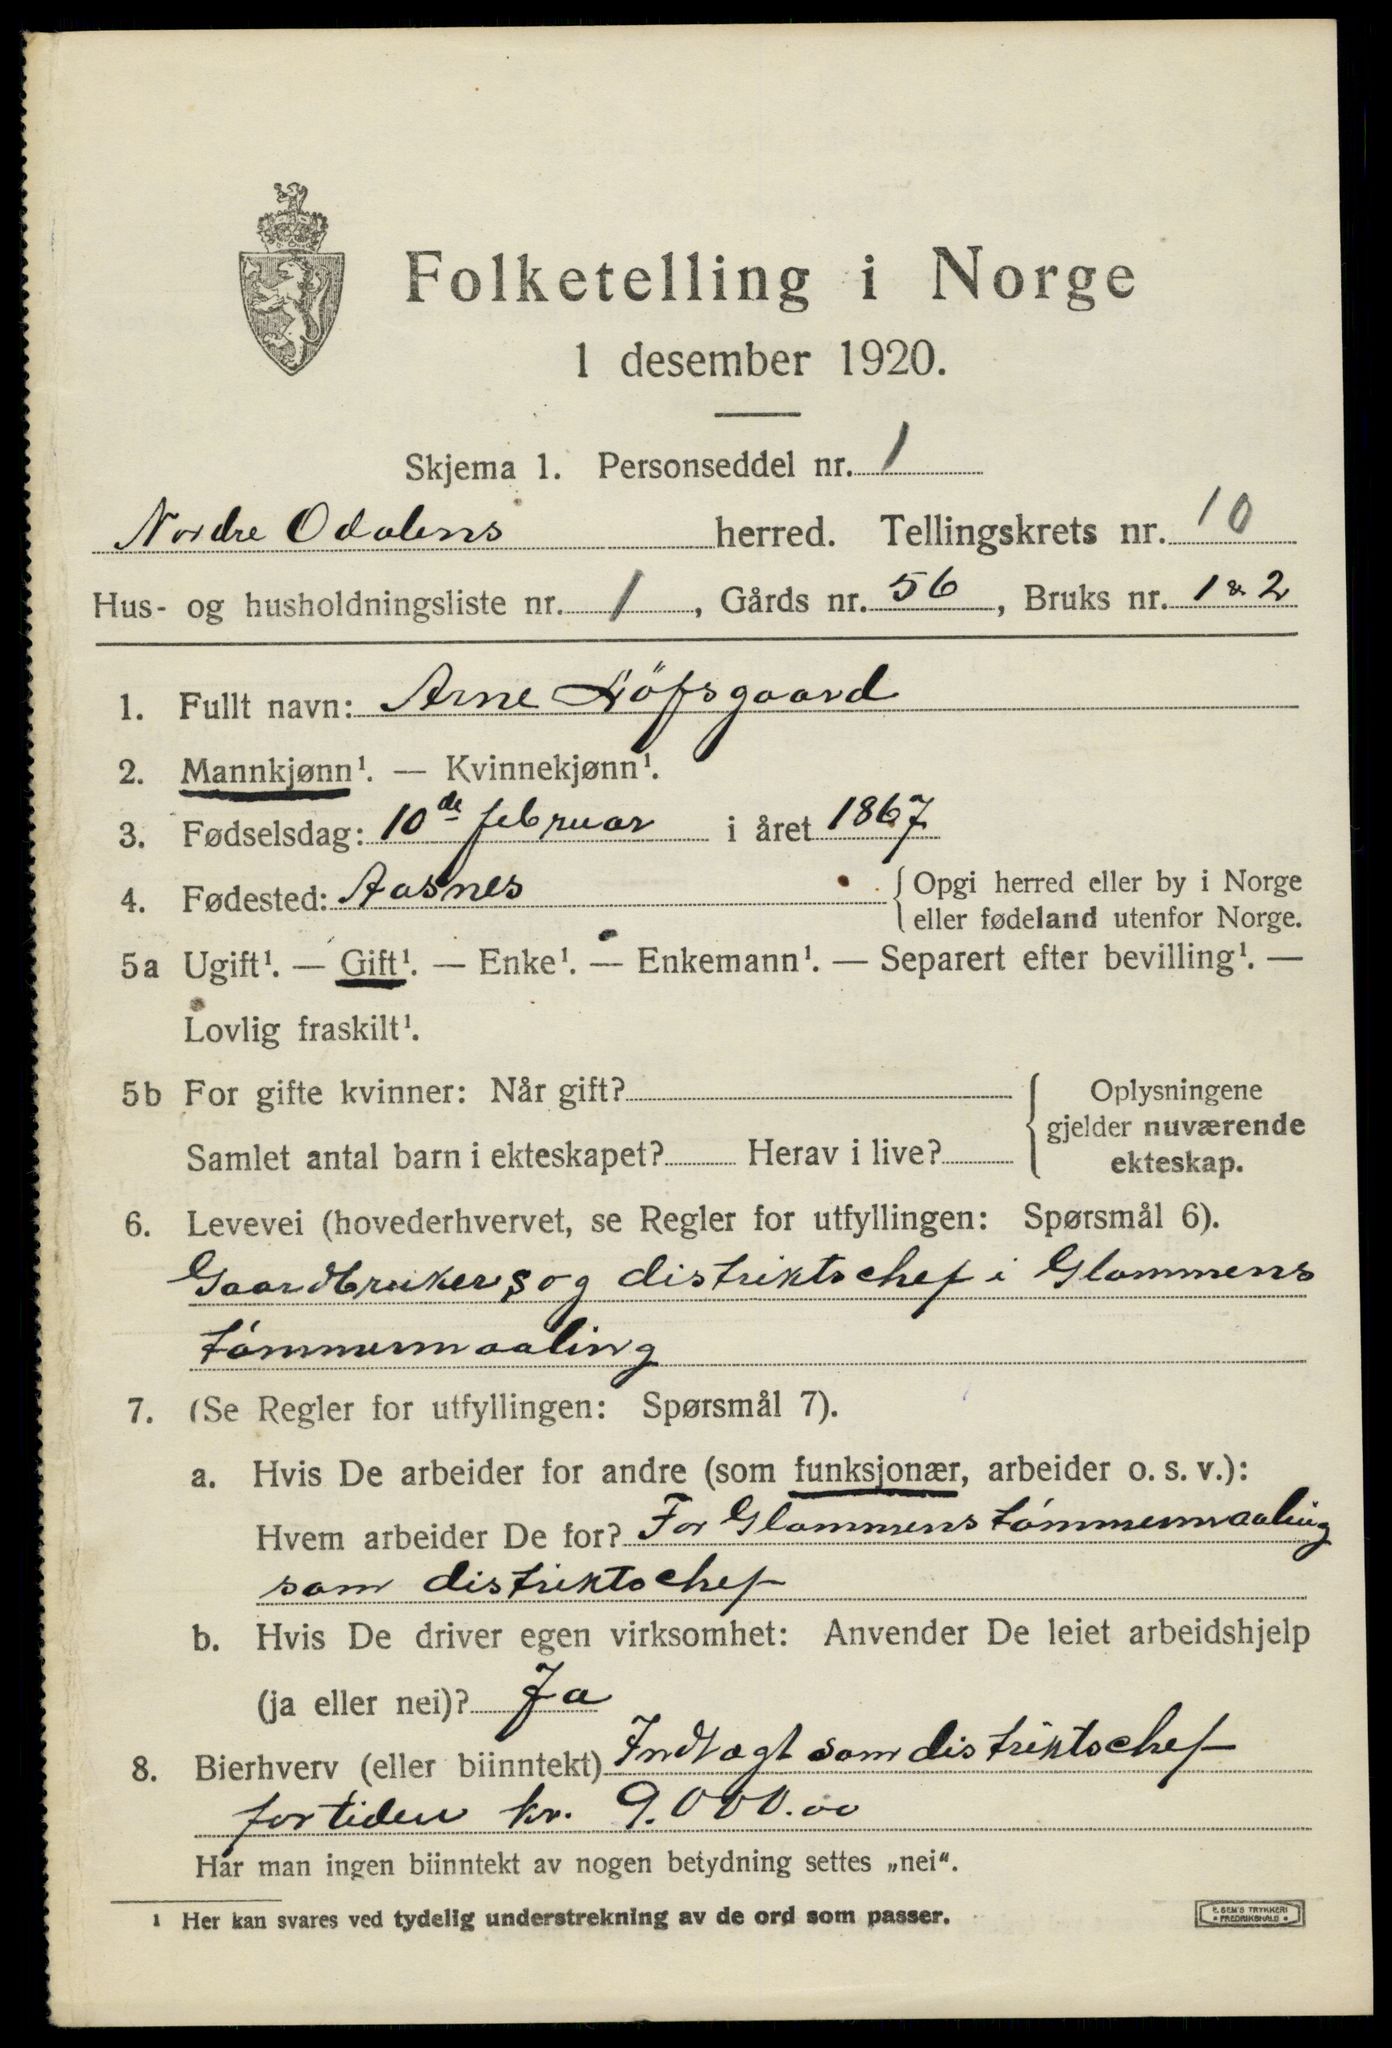 Folketelling i Norge
1 desember 1920.
Skjema 1. Personseddel nr. 1
Nordre Odalens herred. Tellingskrets nr. 10
Hus- og husholdningsliste nr. 1, Gårds nr. 56, Bruks nr. 1 & 2
1. Fullt navn: Arne Löfsgaard
2. Mannkjønn¹. — Kvinnekjønn¹.
3. Fødselsdag: 10de februar i året 1867
4. Fødested: Aasnes { Opgi herred eller by i Norge
eller fødeland utenfor Norge.
5a Ugift¹. — Gift¹. — Enke¹. — Enkemann¹. — Separert efter bevilling¹. —
Lovlig fraskilt¹.
5b For gifte kvinner: Når gift? { Oplysningene
gjelder nuværende
Samlet antal barn i ekteskapet? Herav i live? ekteskap.
6. Levevei (hovederhvervet, se Regler for utfyllingen: Spørsmål 6).
Gaardbruker, og distriktschef i Glommens
tómmermaaling
7. (Se Regler for utfyllingen: Spørsmål 7).
a. Hvis De arbeider for andre (som funksjonær, arbeider o. s. v.):
Hvem arbeider De for? For Glommens tómmermaaling
som distriktschef
b. Hvis De driver egen virksomhet: Anvender De leiet arbeidshjelp
(ja eller nei)? Ja
8. Bierhverv (eller biinntekt) Indtægt som distriktschef
for tiden kr. 9.000.00
Har man ingen biinntekt av nogen betydning settes „nei“.
¹ Her kan svares ved tydelig understrekning av de ord som passer.
E. SEM'S TRYKKERI
FREDRIKSHALD